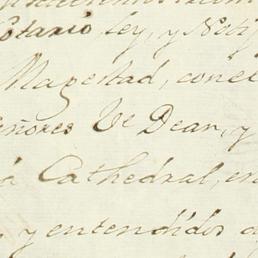 otario ley, y Noti
Magestad, con el
eñores Ve Dean, y
a Cathedral, en
y entendidos d